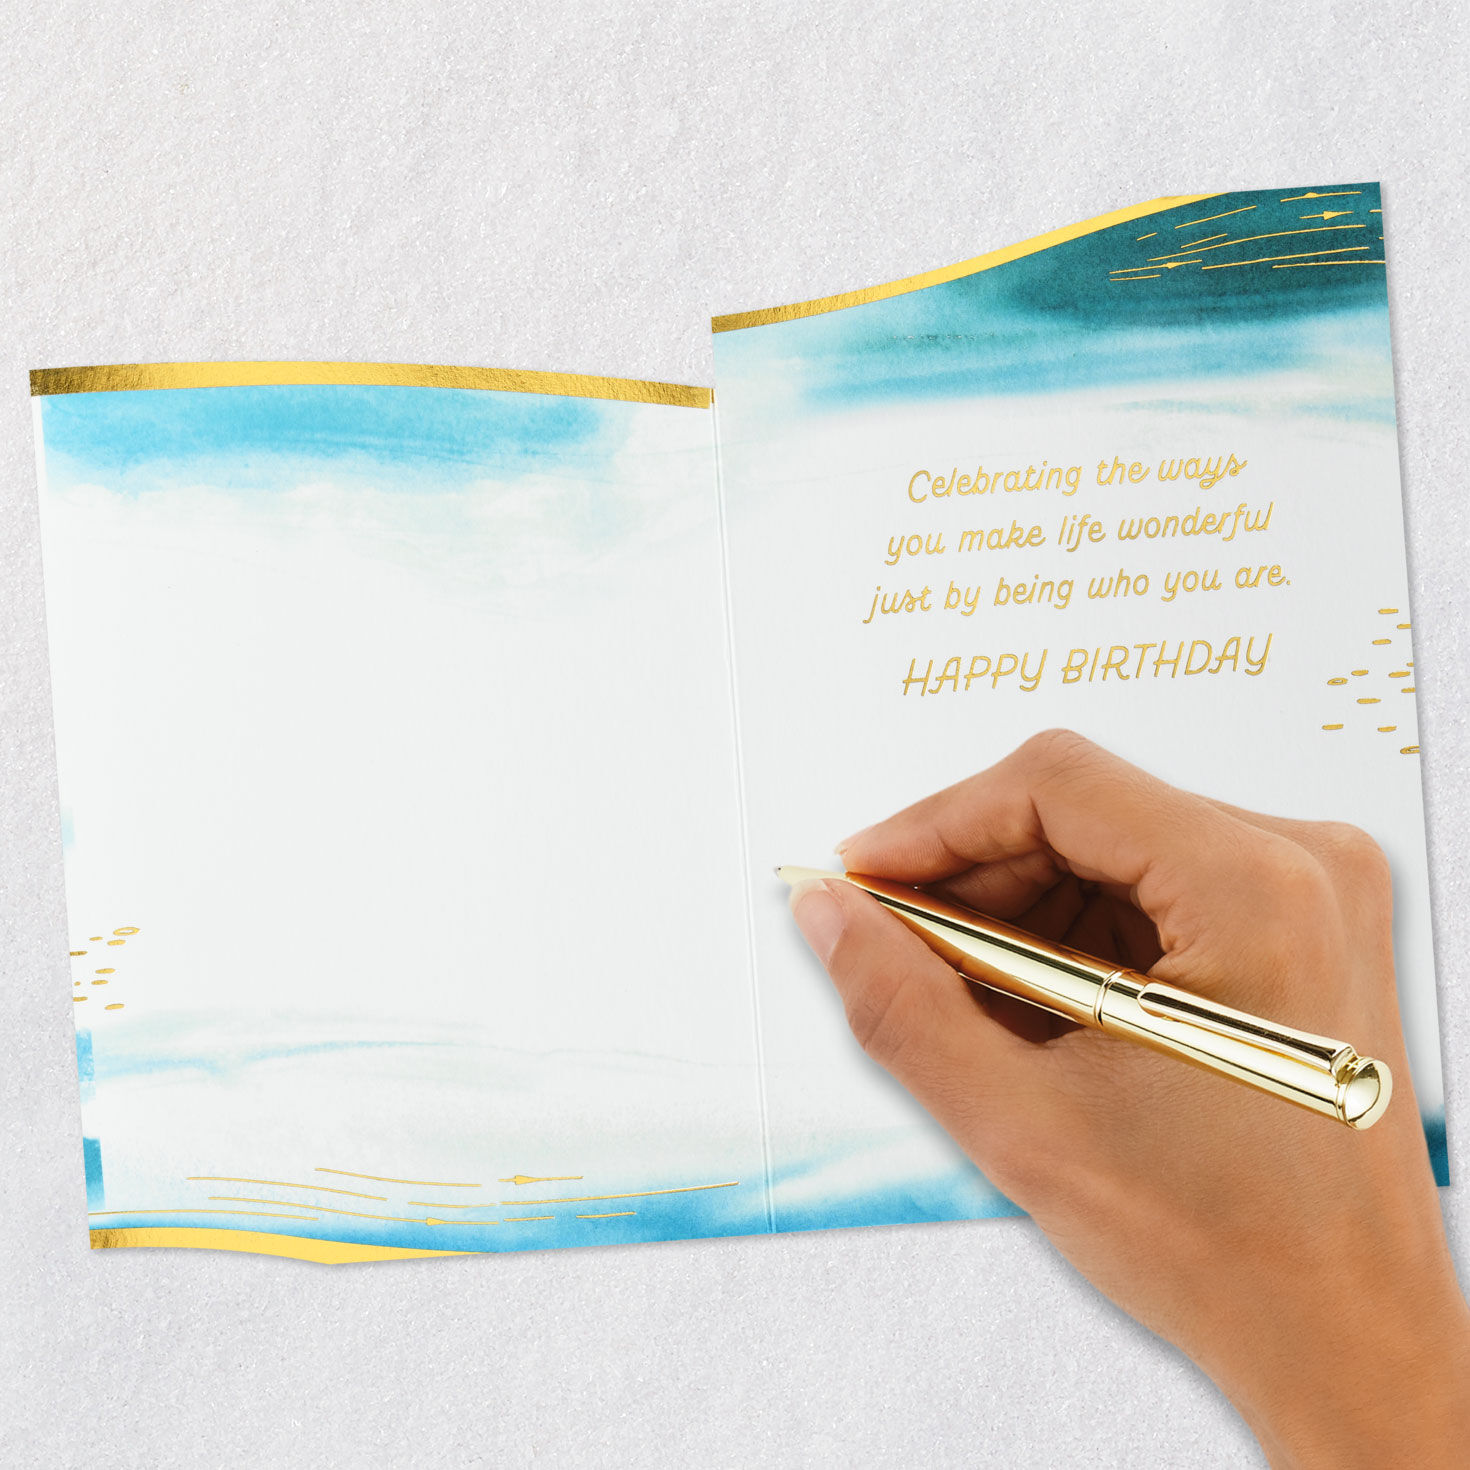 Celebrating the ways
you make life wonderful
just by being who you are.
HAPPY BIRTHDAY